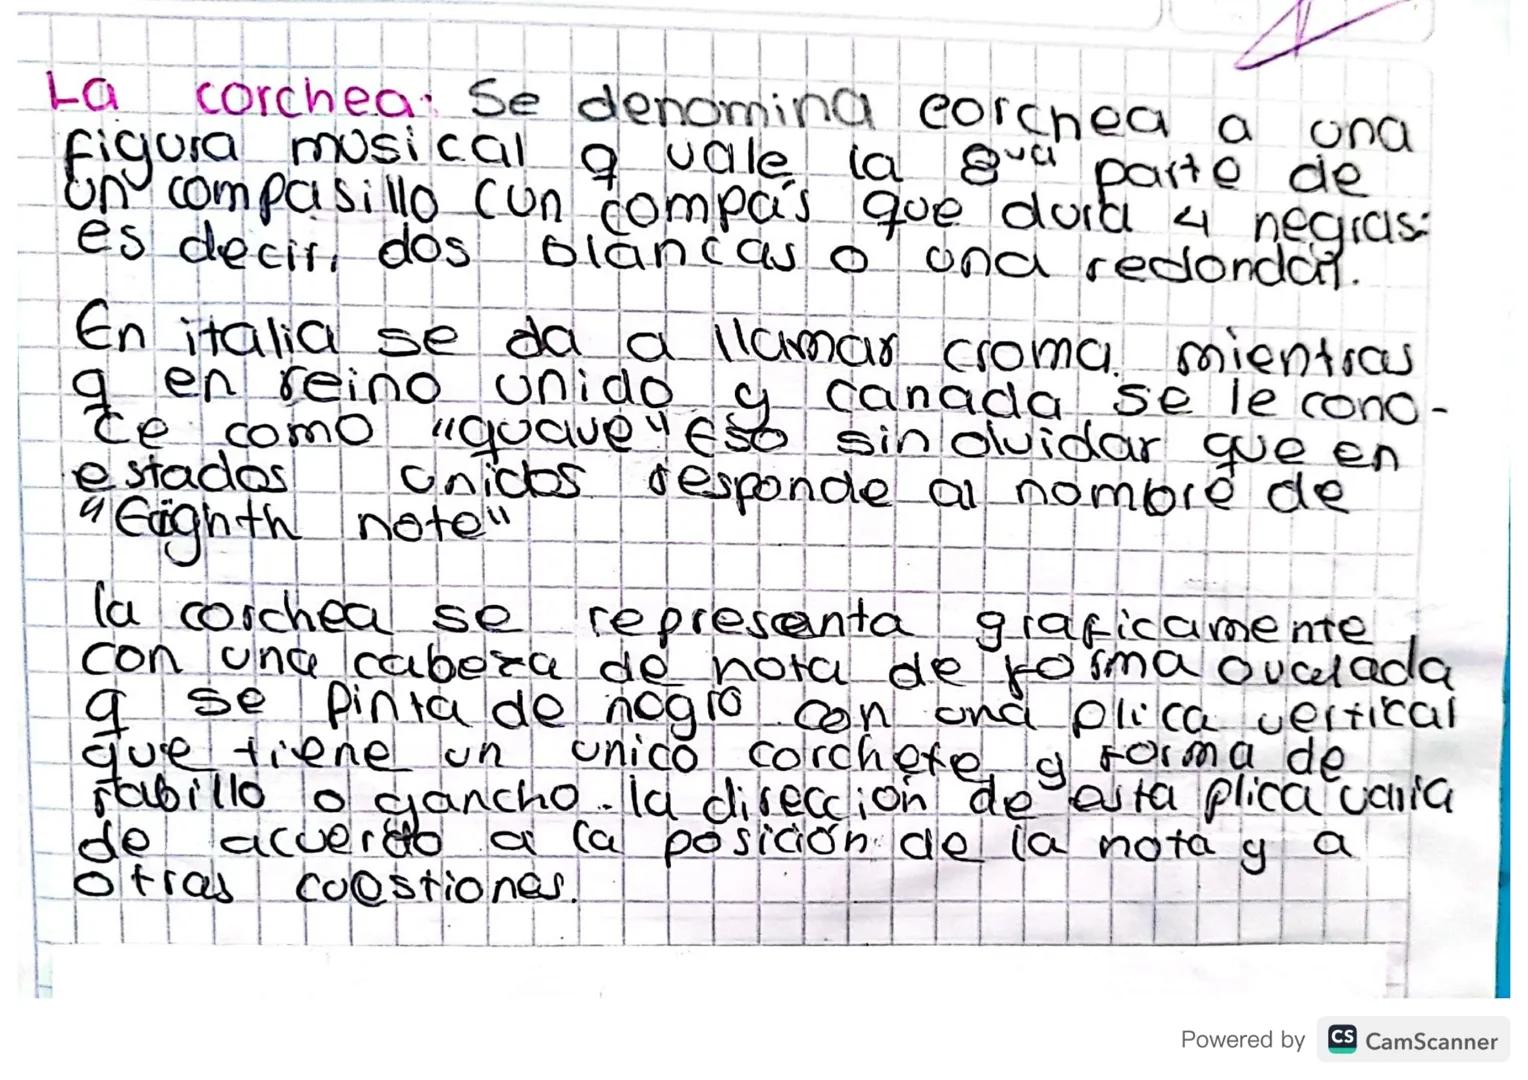 La corchea: Se denomina corchea a una
figura musical q vale la 8va parte de
un compasillo (un compás que dura 4 negras:
es decir, dos blancas o una redonda).
En italia se da a llamar croma. mientras
q en reino unido y canada se le cono-
ce como "quave" Eso sin olvidar que en
estados unidos responde al nombre de
"Eighth note"
la corchea se representa graficamente,
con una cabeza de nota de forma ovalada
q se pinta de negro con una plica vertical
que tiene un unico corchete y forma de
rabillo o gancho. la dirección de esta plica varia
de acuerdo a la posición de la nota y a
otras cuestiones.
Powered by CS CamScanner